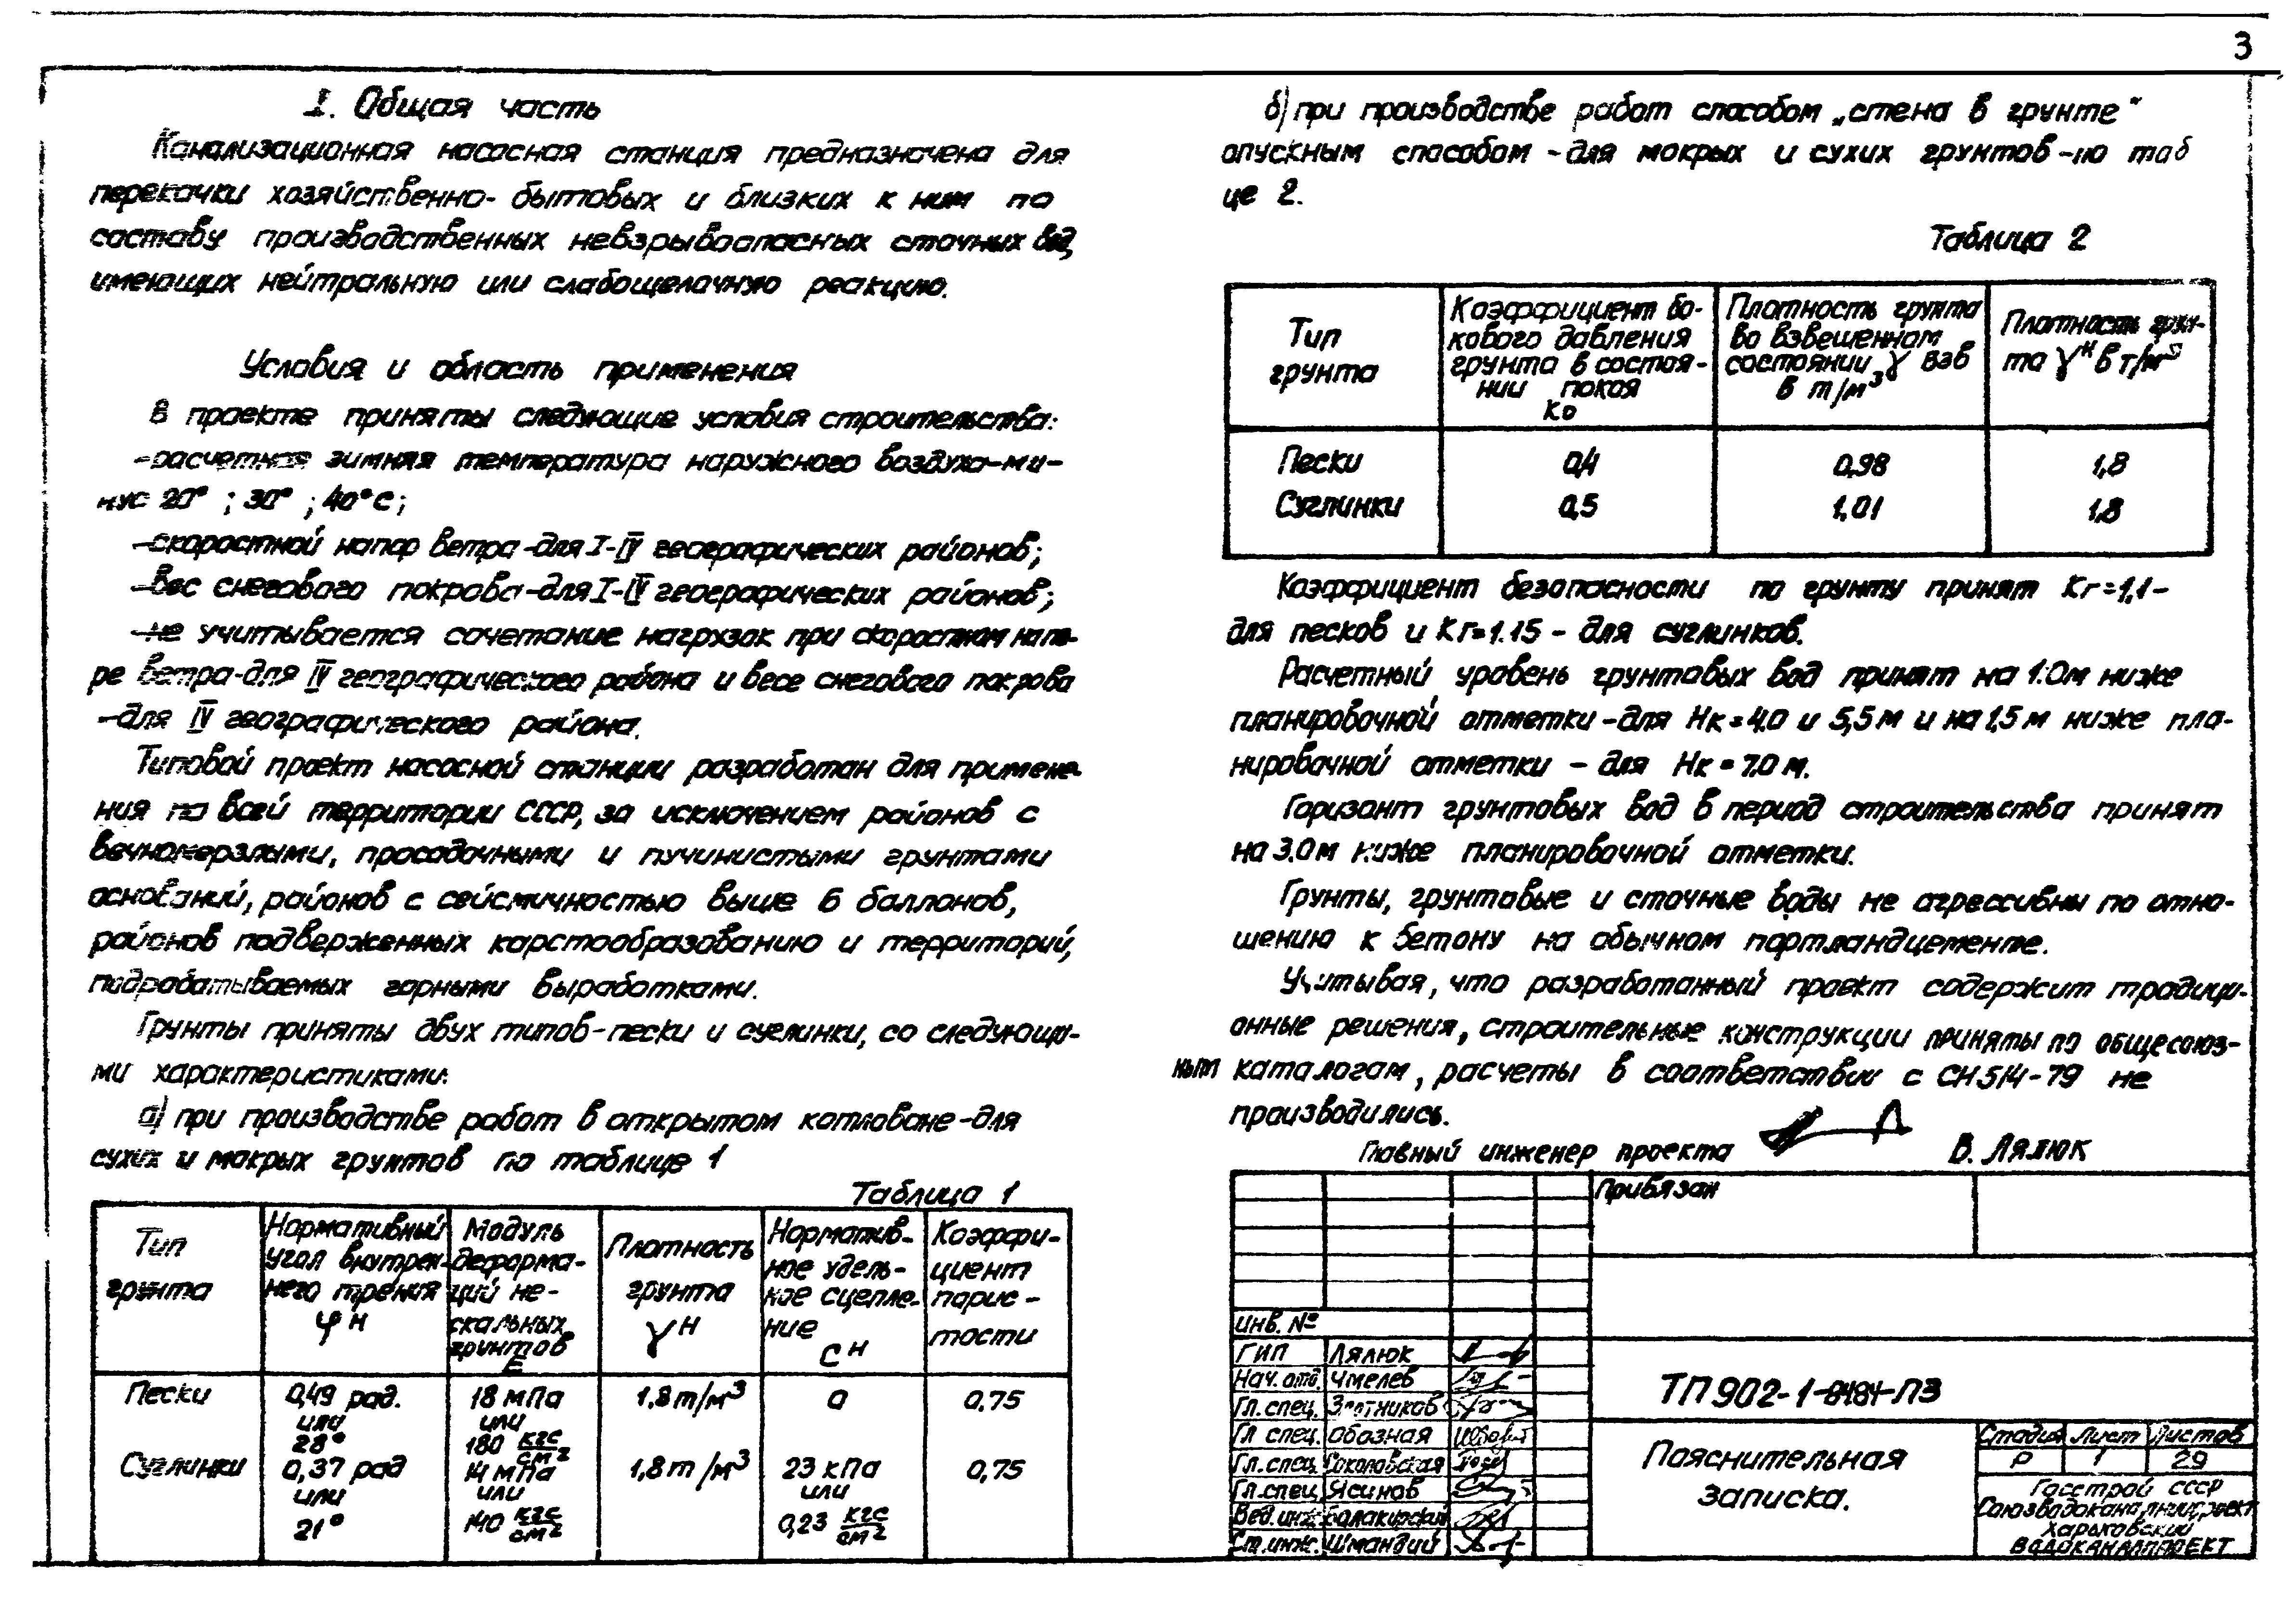 3
I. Общая часть
Канализационная насосная станция предназначена для
перекачки хозяйственно-бытовых и близких к ним по
составу производственных невзрывоопасных сточных вод,
имеющих нейтральную или слабощелочную реакцию.
Условия и область применения
В проекте приняты следующие условия строительства:
-расчетная зимняя температура наружного воздуха-ми-
нус 20° ; 30° ; 40°С;
-скоростной напор ветра-для I-IV географических районов;
-Вес снегового покрова-для I-IV географических районов;
-не учитывается сочетание нагрузок при скоростном напо-
ре ветра-для IV географического района и весе снегового покрова
-для IV географического района.
Типовой проект насосной станции разработан для примене-
ния по всей территории СССР, за исключением районов с
вечномерзлыми, просадочными и пучинистыми грунтами
оснований, районов с сейсмичностью выше 6 баллонов,
районов подверженных карстообразованию и территорий,
подрабатываемых горными выработками.
Грунты приняты двух типов-пески и суглинки, со следующи-
ми характеристиками:
а) при производстве работ в открытом котловане-для
сухих и мокрых грунтов по таблице 1
Таблица 1
Тип
грунта
Нормативный
угол внутрен-
него трения
φн
Модуль
деформа-
ций не-
скальных
грунтов
Е
Плотность
грунта
γн
Норматив-
ное удель-
ное сцепле-
ние
Сн
Коэффи-
циент
порис-
тости
Пески
0,49 рад.
или
28°
18 мПа
или
180 кгс/см²
1,8т/м³
0
0,75
Суглинки
0,37 рад
или
21°
14 мПа
или
140 кгс/см²
1,8т/м³
23 кПа
или
0,23 кгс/см²
0,75
б) при производстве работ способом „стена в грунте"
опускным способом-для мокрых и сухих грунтов-по таб
це 2.
Таблица 2
Тип
грунта
Коэффициент бо-
кового давления
грунта в состоя-
нии покоя
Ко
Плотность грунта
во взвешенном
состоянии γ взв
в т/м³
Плотность грун-
та γн в т/м³
Пески 0,4 0,98 1,8
Суглинки 0,5 1,01 1,8
Коэффициент безопасности по грунту принят Кг=1,1-
для песков и Кг=1.15 - для суглинков.
Расчетный уровень грунтовых вод принят на 1.0м ниже
планировочной отметки-для Нк=4.0 и 5,5м и на 1,5м ниже пла-
нировочной отметки - для Нк=7.0м.
Горизонт грунтовых вод в период строительства принят
на 3.0м ниже планировочной отметки.
Грунты, грунтовые и сточные воды не агрессивны по отно-
шению к бетону на обычном портландцементе.
Учитывая, что разработанный проект содержит традици-
онные решения, строительные конструкции приняты по общесоюз-
ным каталогам, расчеты в соответствии с СН514-79 не
производились.
Главный инженер проекта В. Лялюк
Привязан
инв. №
ГИП Лялюк
Нач. отд. Чмелев
Гл. спец. Злотников
Гл спец. Обозная
Гл. спец. Соколовская
Гл. спец. Ясинов
Вед. инж. Балакирский
Ст. инж. Шмандий
ТП 902-1-84.84-ПЗ
Пояснительная
записка.
Стадия Лист Листов
Р 1 29
Госстрой СССР
Союзводоканалниипроект
Харьковский
ВОДОКАНАЛПРОЕКТ